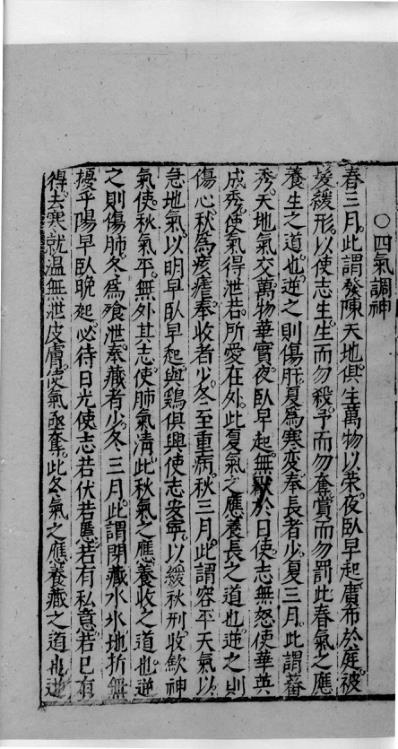 ○四氣調神
春三月此謂發陳天地俱生萬物以榮夜臥早起廣布於庭被
髮緩形以使志生生而勿殺予而勿奪賞而勿罰此春氣之應
養生之道也逆之則傷肝夏為寒変奉長者少夏三月此謂蕃
秀天地氣交萬物華實夜臥早起無猒於日使志無怒使華英
成秀使氣得泄若所愛在外此夏氣之應養長之道也逆之則
傷心秋為痎瘧奉收者少冬至重病秋三月此謂容平天氣以
急地氣以明早臥早起與鷄俱興使志安寧以緩秋刑收歛神
氣使秋氣平無外其志使肺氣清此秋氣之應養收之道也逆
之則傷肺冬為飱泄奉藏者少冬三月此謂閉藏水氷地拆無
擾乎陽早臥晚起必待日光使志若伏若匿若有私意若已有
得去寒就溫無泄皮膚使氣亟奪此冬氣之應養藏之道也逆